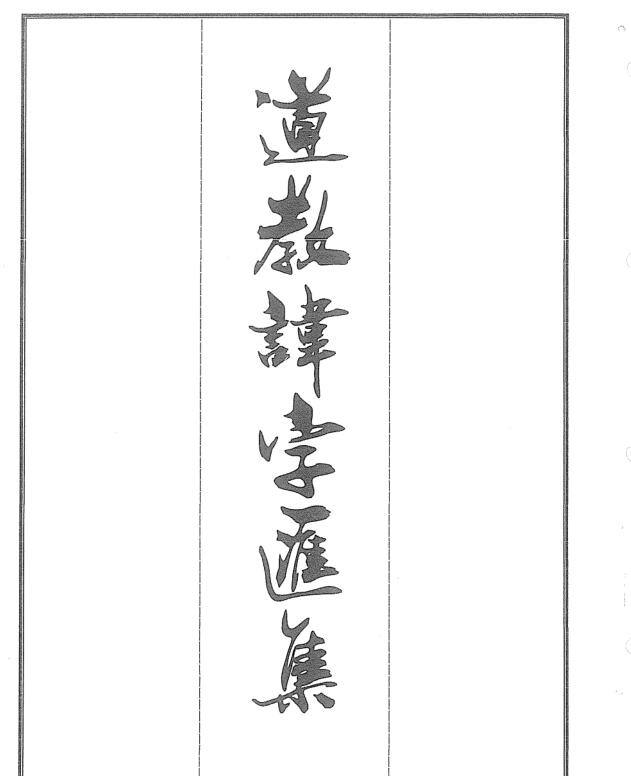 道教諱字匯集